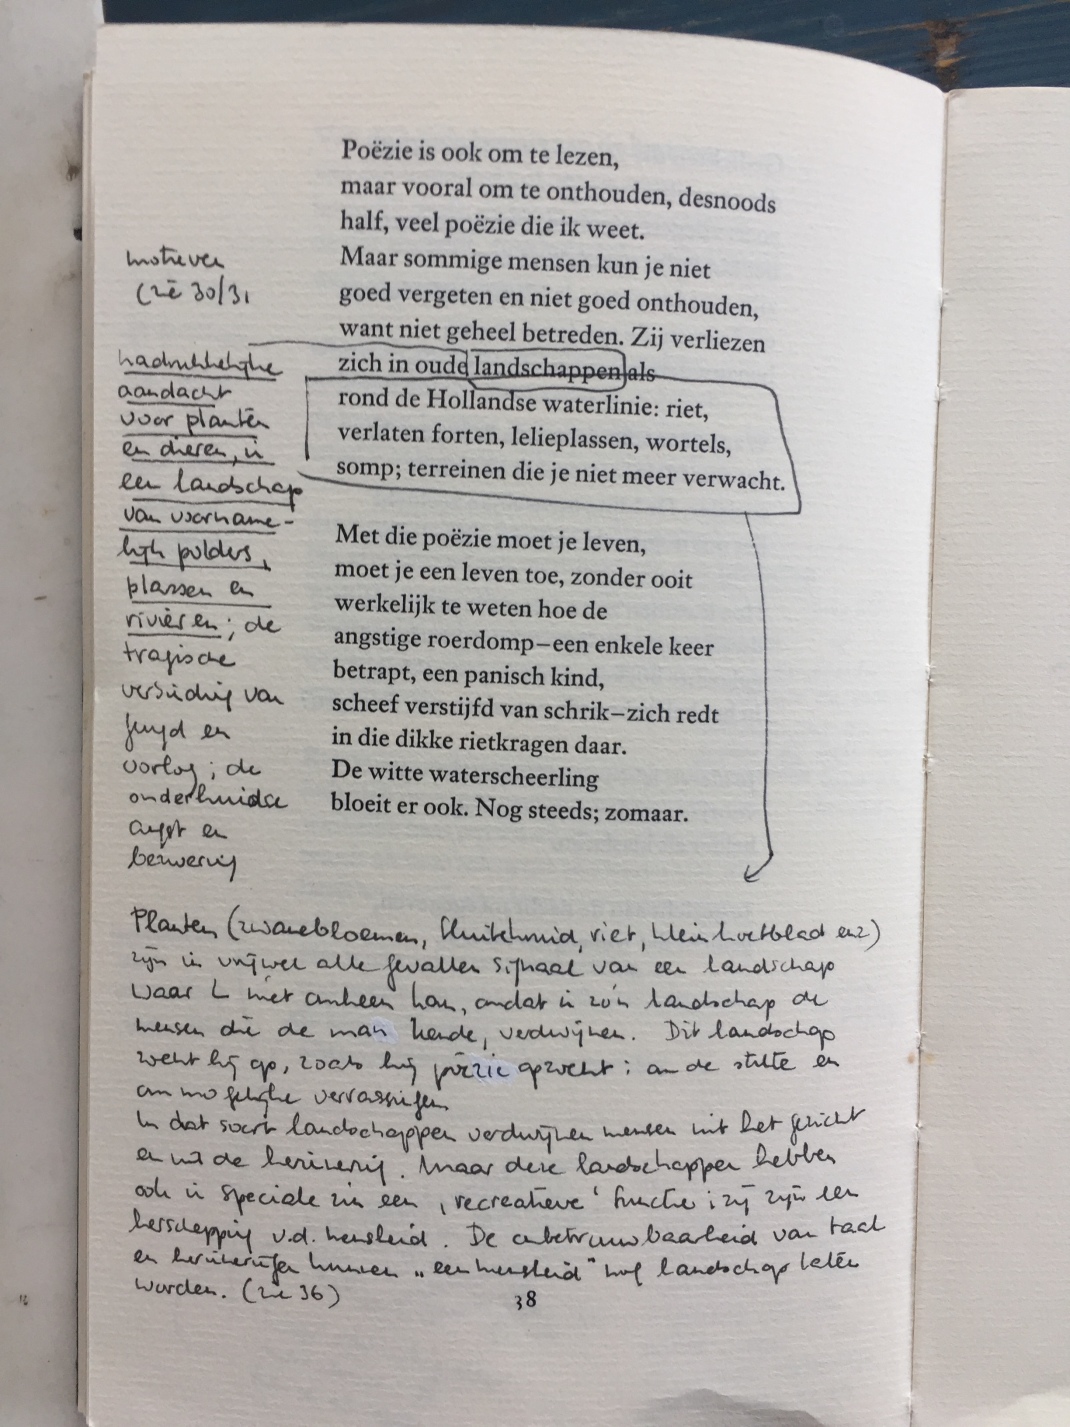 Poëzie is ook om te lezen,
maar vooral om te onthouden, desnoods
half, veel poëzie die ik weet.
Maar sommige mensen kun je niet
goed vergeten en niet goed onthouden,
want niet geheel betreden. Zij verliezen
zich in oude landschappen als
rond de Hollandse waterlinie: riet,
verlaten forten, lelieplassen, wortels,
somp; terreinen die je niet meer verwacht.
Met die poëzie moet je leven,
moet je een leven toe, zonder ooit
werkelijk te weten hoe de
angstige roerdomp–een enkele keer
betrapt, een panisch kind,
scheef verstijfd van schrik–zich redt
in die dikke rietkragen daar.
De witte waterscheerling
bloeit er ook. Nog steeds; zomaar.
motieven
(zie 30/31
nadrukkelijke
aandacht
voor planten
en dieren, in
een landschap
van voorname-
lijk polders,
plassen en
rivieren; de
tragische
verbinding van
jeugd en
oorlog; de
onderhuidse
angst en
bezwering
Planten (zwanebloemen, fluitekruid, riet, klein hoefblad enz)
zijn in vrijwel alle gevallen signaal van een landschap
waar L niet omheen kan, omdat in zo'n landschap de
mensen die de man kende, verdwijnen. Dit landschap
zoekt hij op, zoals hij poëzie opzoekt: om de stilte en
om mogelijke verrassingen
In dat soort landschappen verdwijnen mensen uit het gezicht
en uit de herinnering. Maar deze landschappen hebben
ook in speciale zin een 'recreatieve' functie; zij zijn een
herschepping v.d. mensheid. De onbetrouwbaarheid van taal
en herinneringen kunnen "een mensheid" nog landschap laten
worden. (zie 36)
38